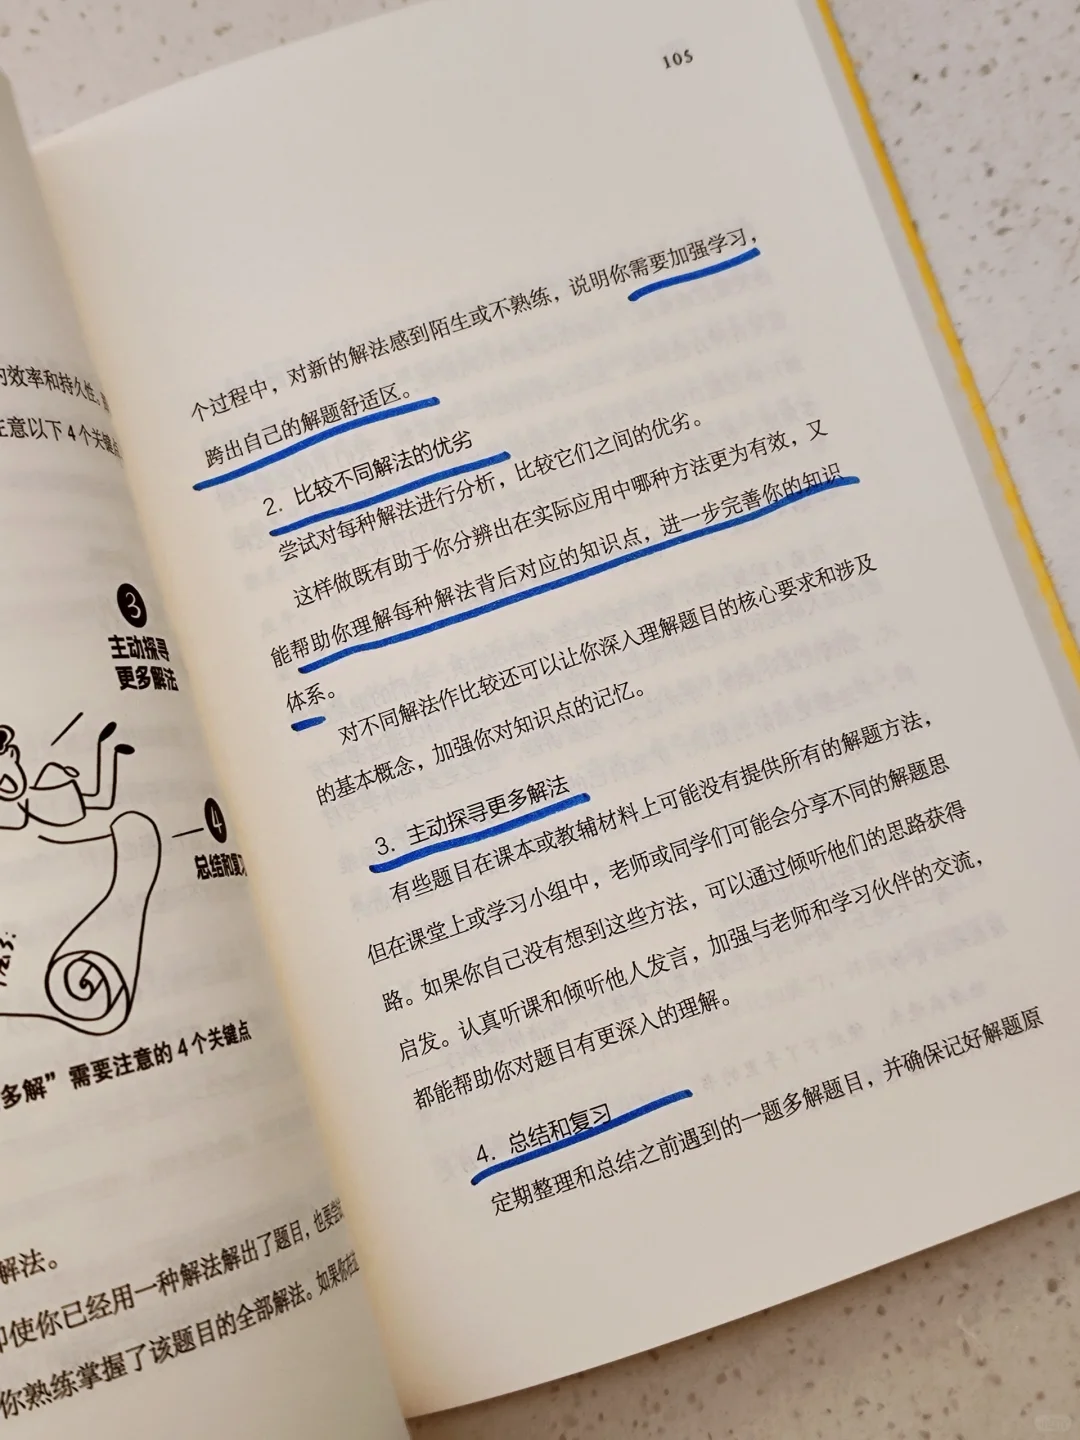 的效率和持久性。
注意以下4个关键点
3
主动探寻
更多解法
4
总结和复习
多解”需要注意的4个关键点
解法。
即使你已经用一种解法解出了题目，也要尝试
你熟练掌握了该题目的全部解法。如果你在这
105
个过程中，对新的解法感到陌生或不熟练，说明你需要加强学习，
跨出自己的解题舒适区。
2. 比较不同解法的优劣
尝试对每种解法进行分析，比较它们之间的优劣。
这样做既有助于你分辨出在实际应用中哪种方法更为有效，又
能帮助你理解每种解法背后对应的知识点，进一步完善你的知识
体系。
对不同解法作比较还可以让你深入理解题目的核心要求和涉及
的基本概念，加强你对知识点的记忆。
3. 主动探寻更多解法
有些题目在课本或教辅材料上可能没有提供所有的解题方法，
但在课堂上或学习小组中，老师或同学们可能会分享不同的解题思
路。如果你自己没有想到这些方法，可以通过倾听他们的思路获得
启发。认真听课和倾听他人发言，加强与老师和学习伙伴的交流，
都能帮助你对题目有更深入的理解。
4. 总结和复习
定期整理和总结之前遇到的一题多解题目，并确保记好解题原